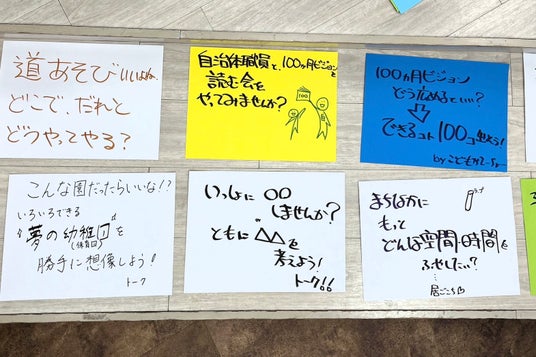 道あそびいいよね
どこで、だれと
どうやってやる?
自治体職員と、100か月ビジョンを
読む会を
やってみませんか?
100
100ヵ月ビジョン
どう広めるぅ…?
できるコト100コ出そう!
by こどもかてらす
こんな園だったらいいな!?
いろいろできる
"夢の幼稚園"を
(保育園)
勝手に想像しよう!
トーク
いっしょに〇〇
しませんか?
ともに△△を
考えよう!
トーク!!
まちなかに
もっと
どんな空間・時間を
ふやしたい…?
居ごこち